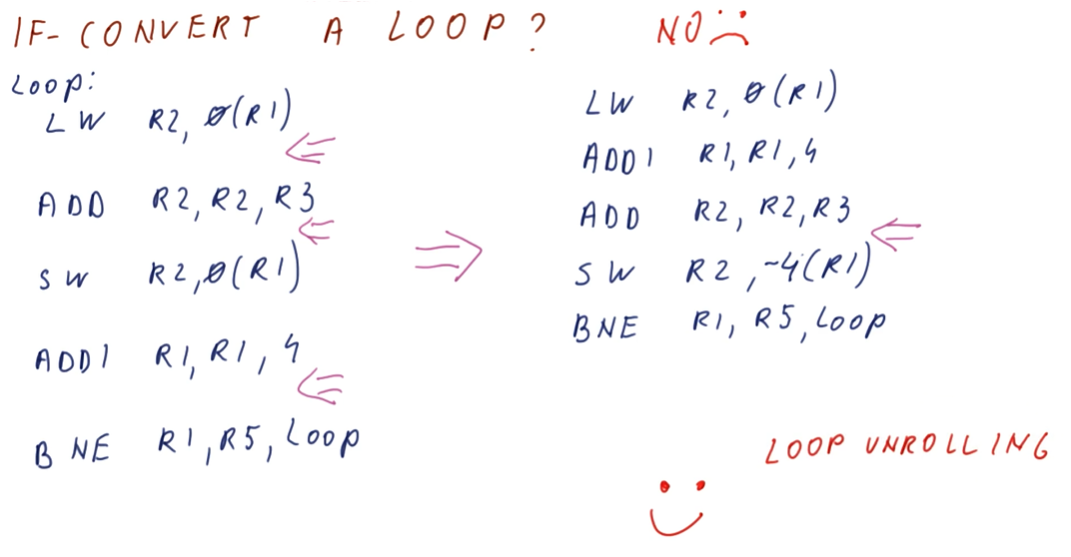 IF-CONVERT A LOOP? NO
Loop:
LW R2, 0(R1)
ADD R2, R2, R3
SW R2, 0(R1)
ADDI R1, R1, 4
BNE R1, R5, Loop
LW R2, 0(R1)
ADDI R1, R1, 4
ADD R2, R2, R3
SW R2, -4(R1)
BNE R1, R5, Loop
LOOP UNROLLING